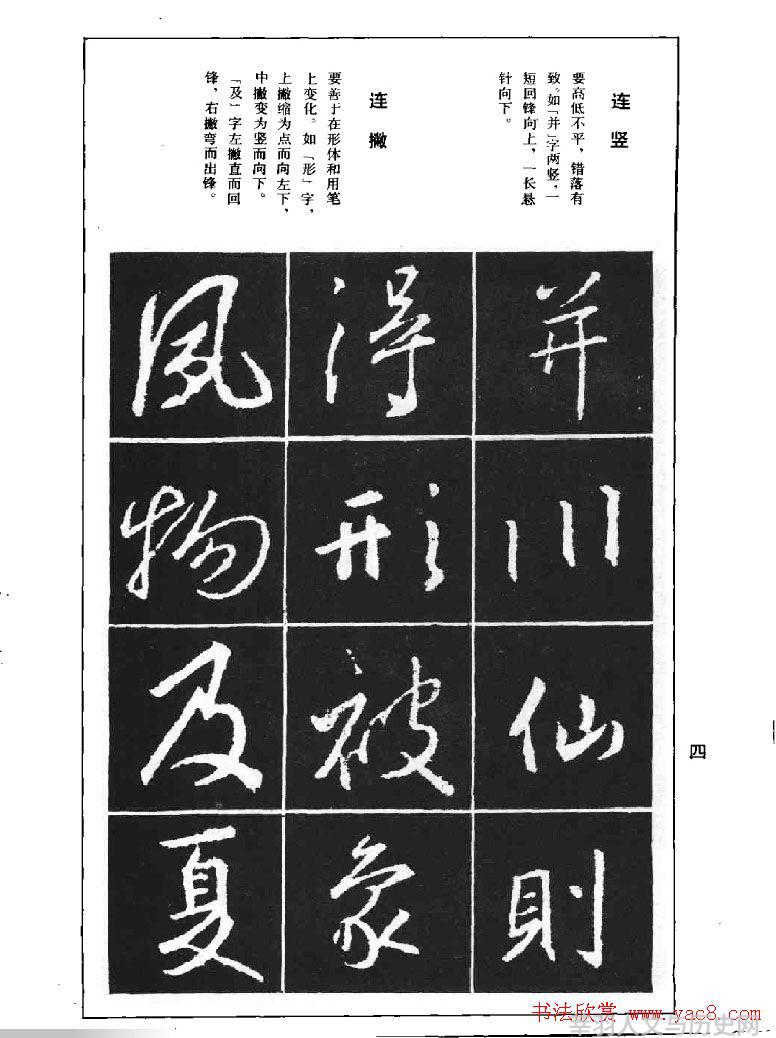 连竖
要高低不平，错落有
致。如「并」字两竖，一
短回锋向上，一长悬
针向下。
连撇
要善于在形体和用笔
上变化。如「形」字，
上撇缩为点而向左下，
中撇变为竖而向下。
「及」字左撇直而回
锋，右撇弯而出锋。
并
川
仙
则
得
形
被
象
風
物
及
夏
四
书法欣赏 www.yac8.com